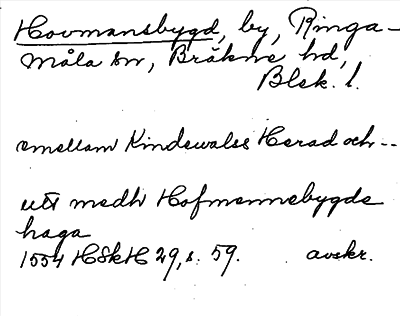 Hovmansbygd, by, Ringa-
måla sn, Bräkne hd,
Blek. l.
emellam Kindewalss Herad och --
utt medh Hofmennebygde
haga
1554 HSkH 29, s. 59. avskr.